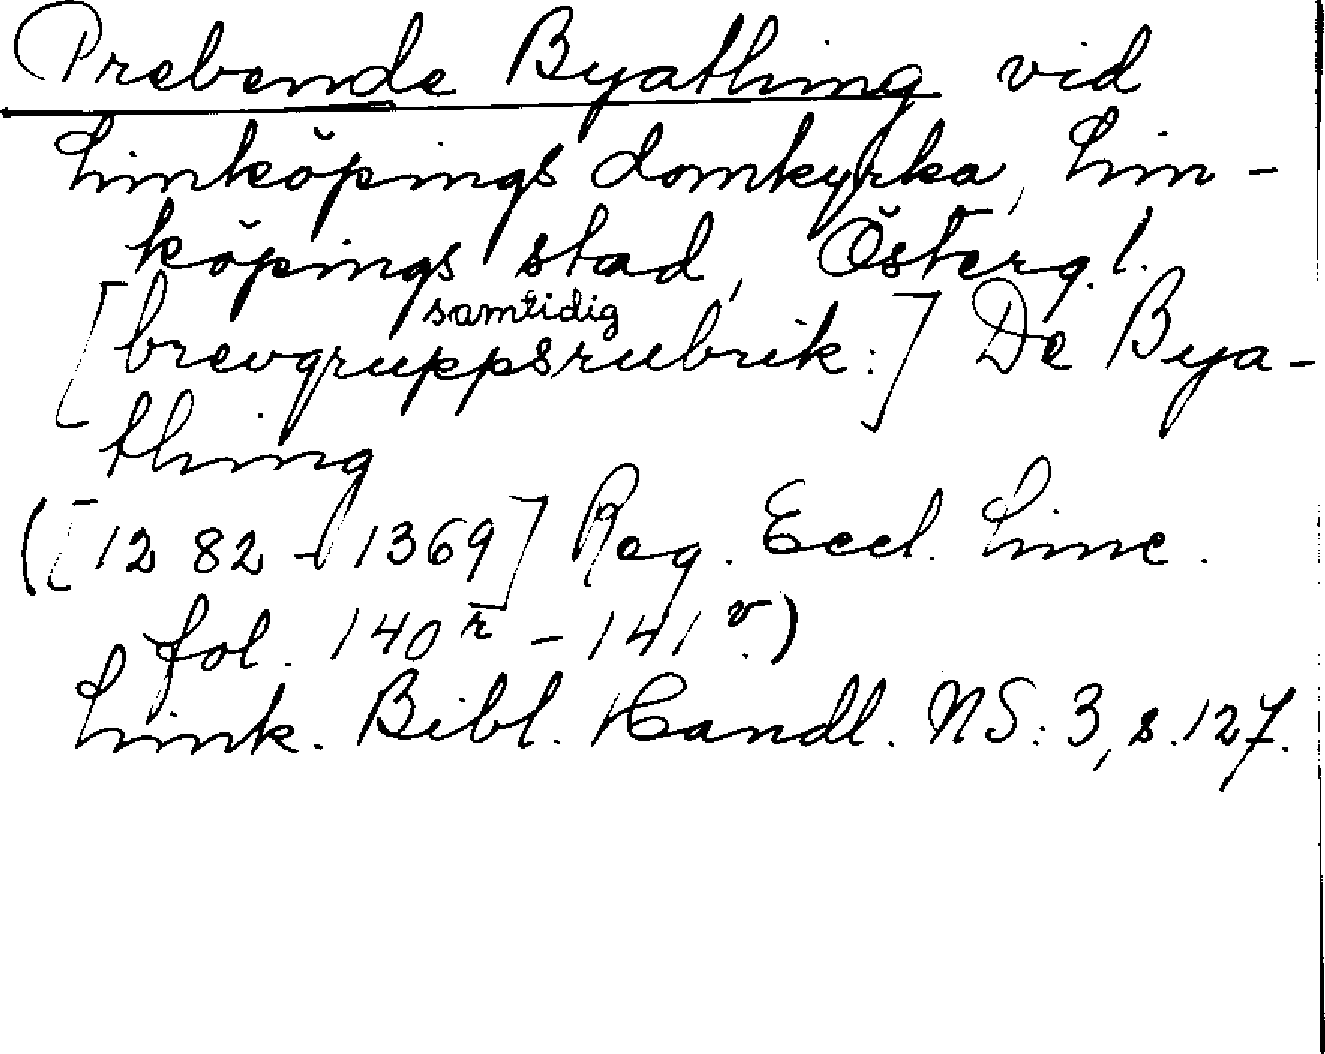 Prebende Byathing vid
Linköpings domkyrka, Lin-
köpings stad, Österg.l.
samtidig
[brevgruppsrubrik:] De Bya-
thing
([1282-1369] Reg. Eccl. Linc.
fol. 140r - 141v.)
Link. Bibl. Handl. NS: 3, s. 127.